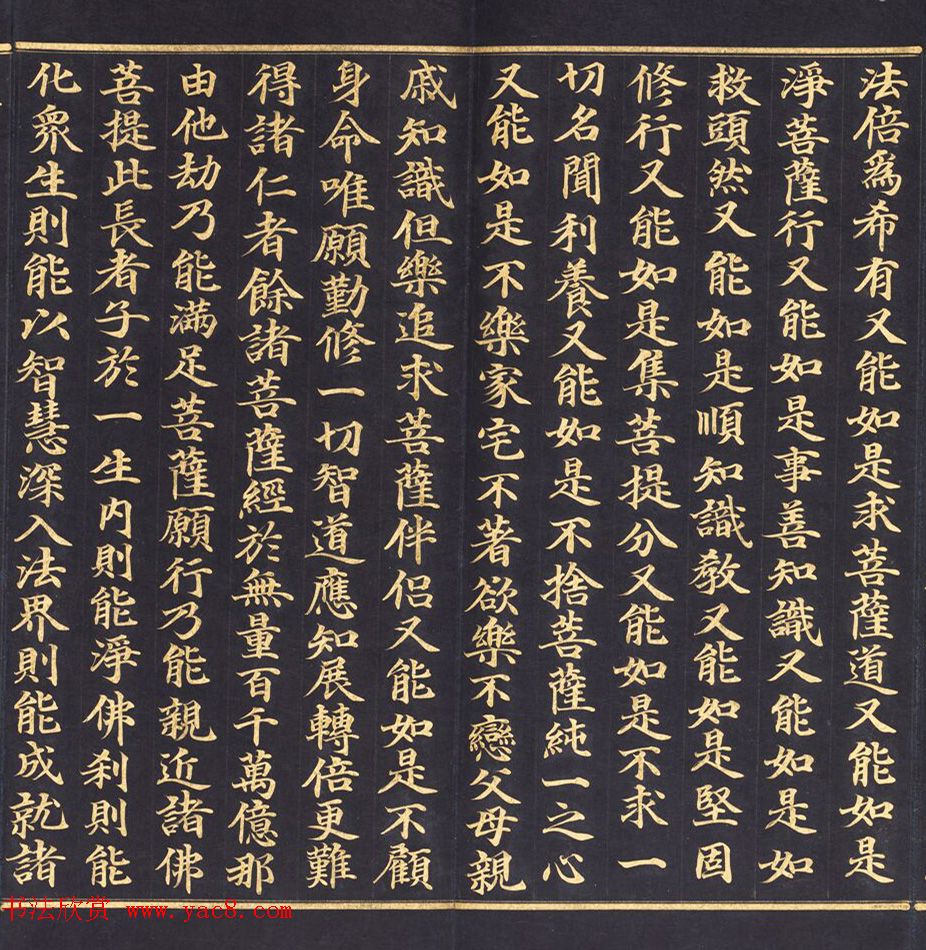 法倍為希有又能如是求菩薩道又能如是
淨菩薩行又能如是事善知識又能如是如
救頭然又能如是順知識教又能如是堅固
修行又能如是集菩提分又能如是不求一
切名聞利養又能如是不捨菩薩純一之心
又能如是不樂家宅不著欲樂不戀父母親
戚知識但樂追求菩薩伴侶又能如是不顧
身命唯願勤修一切智道應知展轉倍更難
得諸仁者餘諸菩薩經於無量百千萬億那
由他劫乃能滿足菩薩願行乃能親近諸佛
菩提此長者子於一生內則能淨佛剎則能
化眾生則能以智慧深入法界則能成就諸
书法欣赏 www.yac8.com